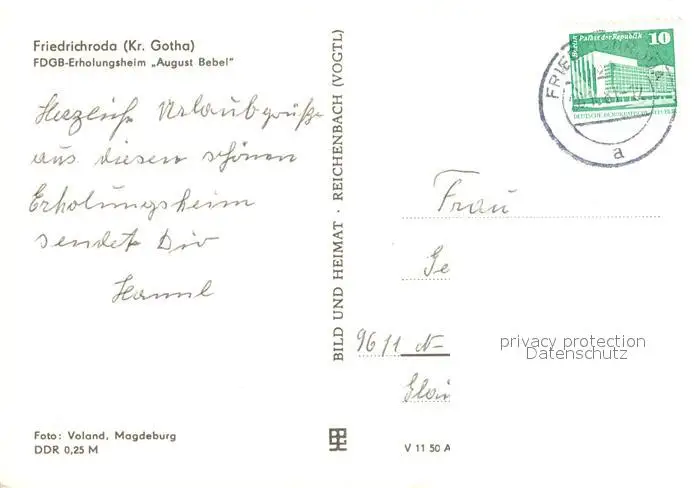 Friedrichroda (Kr. Gotha)
FDGB-Erholungsheim „August Bebel"
Herzliche Urlaubgrüße
aus diesem schönen
Erholungsheim
sendet Dir
BILD UND HEIMAT · REICHENBACH (VOGTL)
10
Berlin Palast der Republik
DEUTSCHE DEMOKRATISCHE REPUBLIK
a
Frau
Ge
9611 N-
Glau
privacy protection
Datenschutz
Foto: Voland, Magdeburg
DDR 0,25 M
V 11 50 A